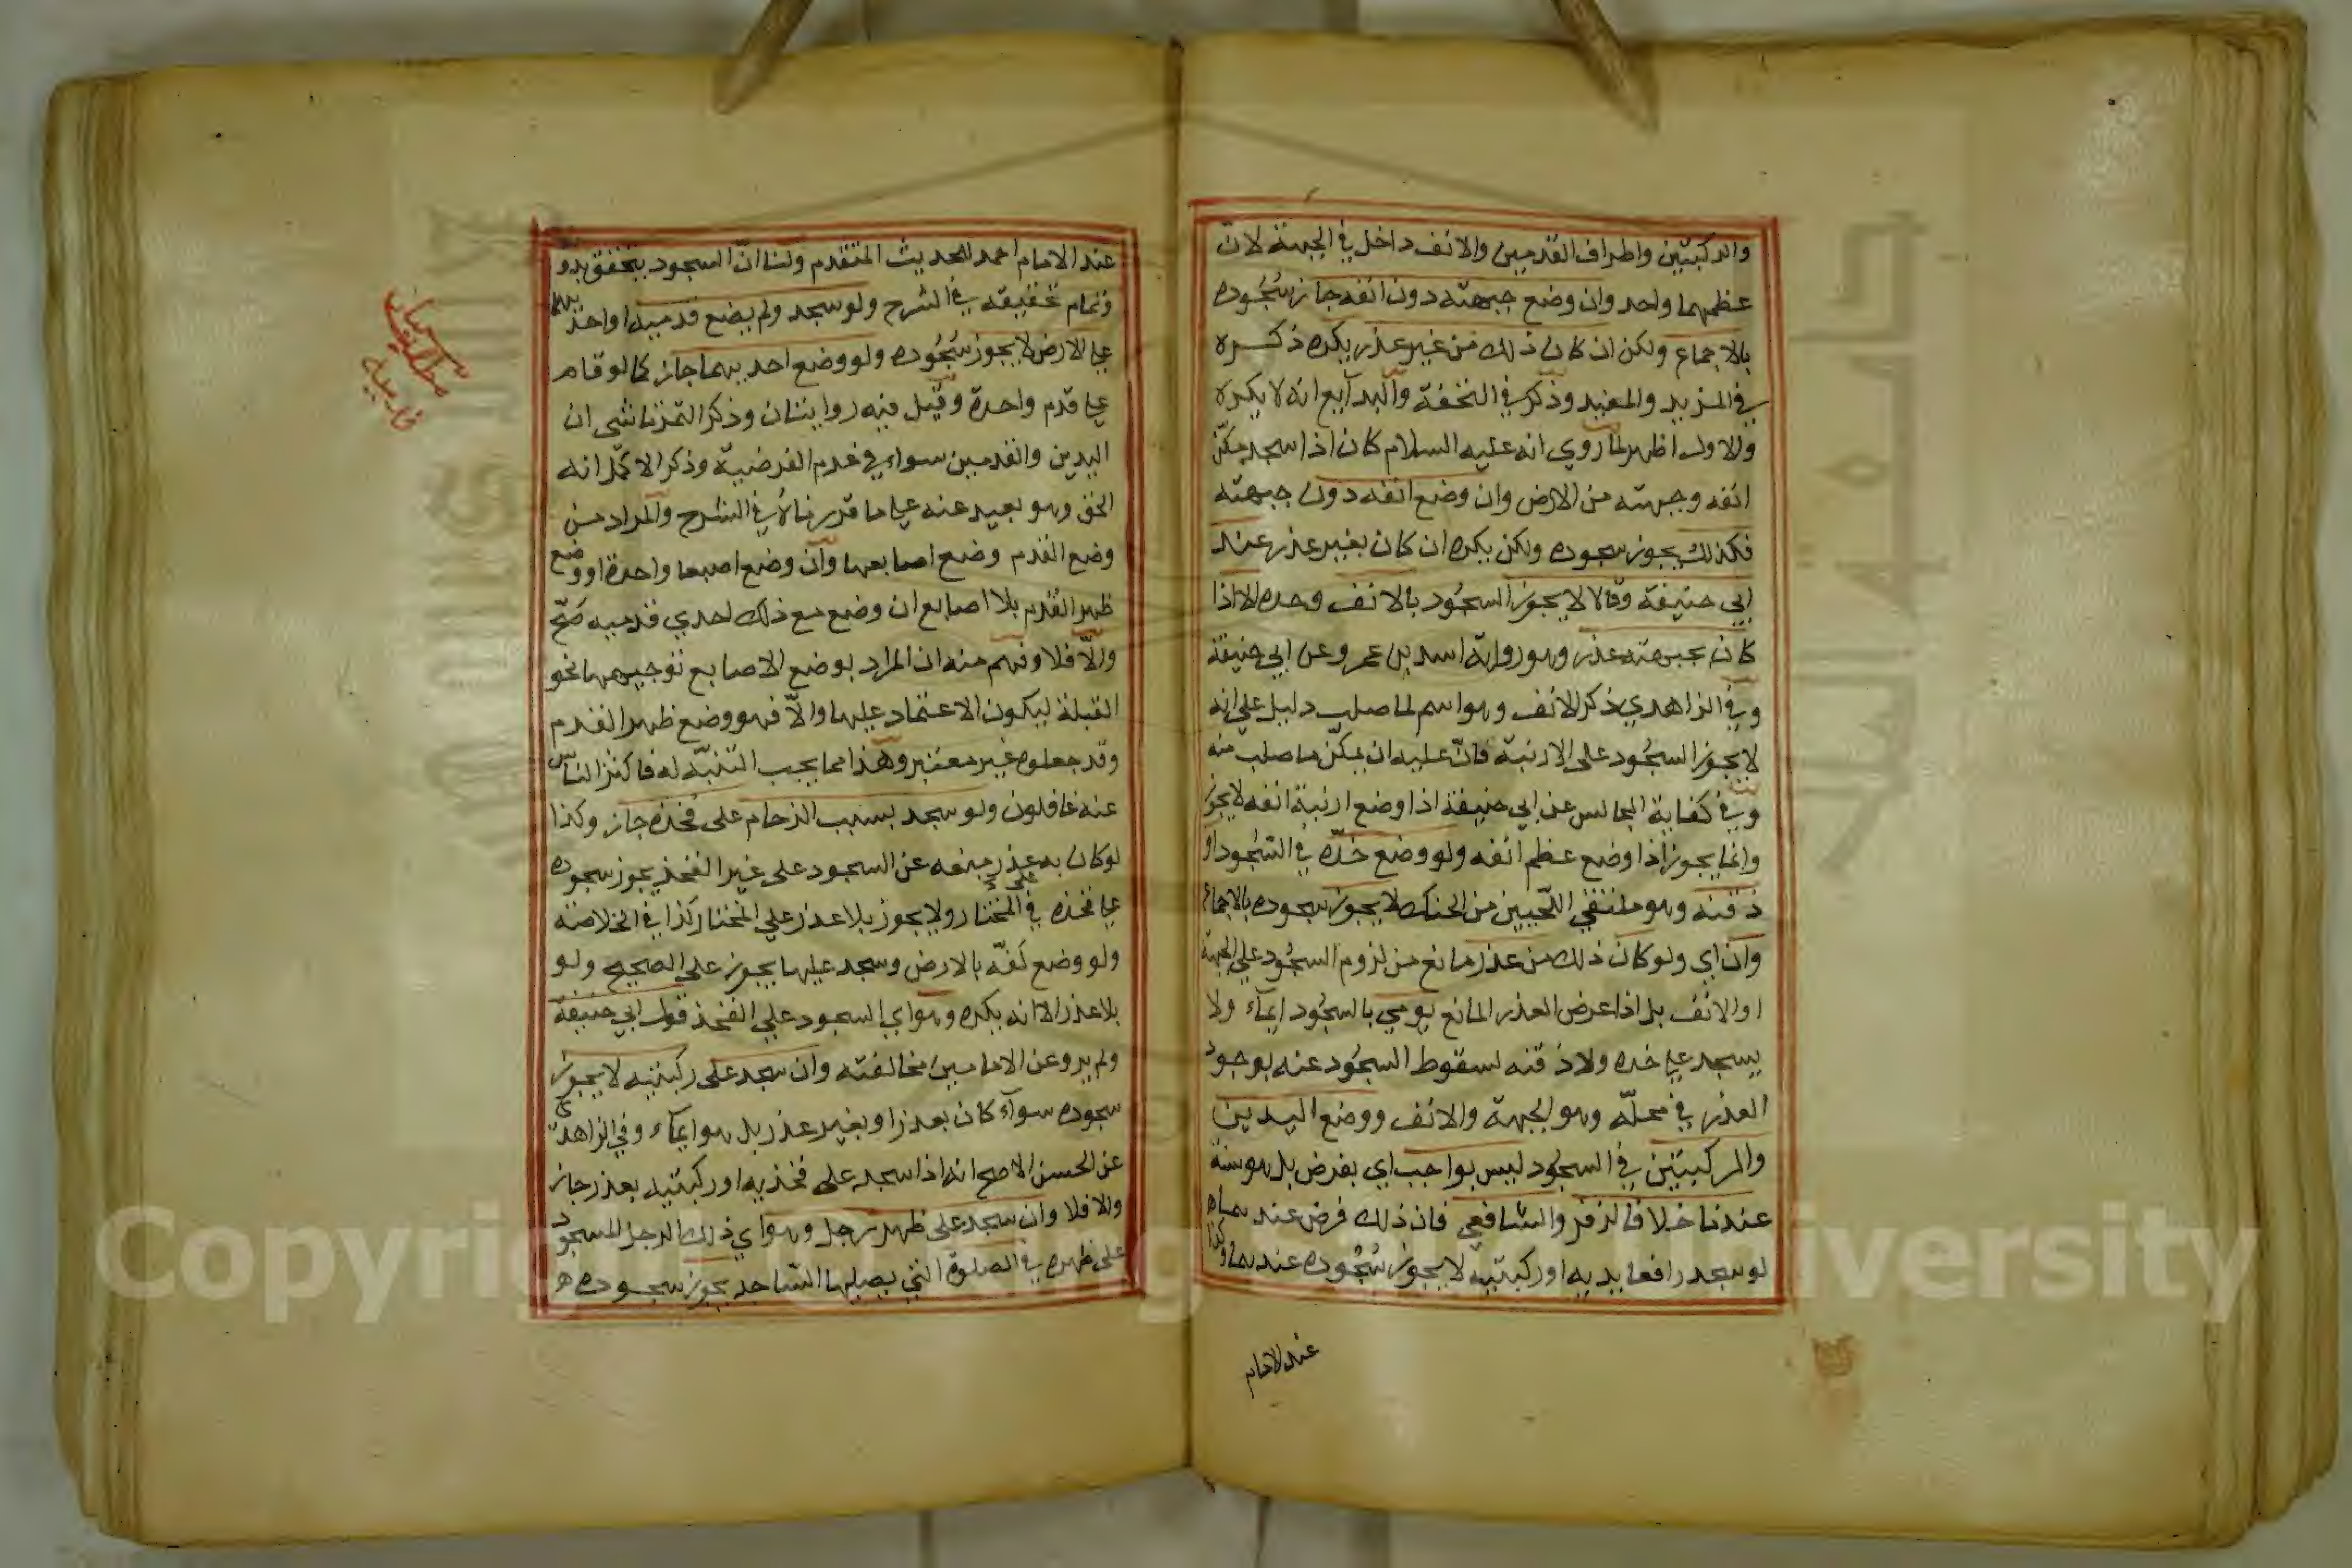 والركبتين واطراف القدمين والانف داخل في الجبهة لان
عظمهما واحد وان وضع جبهته دون انفه جاز سجُوده
بالاجماع ولكن ان كان ذلك من غير عذر يكره ذكره
في المزيد والمفيد وذكر في التحفة والبدآيع انه لا يكره
والاول اظهر لما روي انه عليه السلام كان اذا سجد مكّن
انفه وجبهته من الارض وان وضع انفه دون جبهته
فكذلك يجوز سجوده ولكن يكره ان كان بغير عذر عند
ابي حنيفة وقالا لا يجوز السجُود بالانف وحده الا اذا
كان بجبهته عذر وهو رواية اسد بن عمرو عن ابي حنيفة
وفي الزاهدي ذكر الانف وهو اسم لما صلب دليل على انه
لا يجوز السجُود على الارنبة فانّ عليه ان يمكّن ما صلب منه
وفي كفاية المجالس عن ابي حنيفة اذا وضع ارنبة انفه لا يجوز
وانما يجوز اذا وضع عظم انفه ولو وضع خدّه في السّجُود او
ذقنه وهو ملتقي اللّحيين من الحنك لا يجوز سجوده بالاجماع
وان اي ولو كان ذلك من عذر مانع من لزوم السجُود علي الجبهة
او الانف بل اذا عرض العذر المانع يومي بالسجُود ايمآء ولا
يسجد علي خده ولا ذقنه لسقوط السجُود عنه بوجود
العذر في محلّه وهو الجبهة والانف ووضع اليدين
والركبتين في السجُود ليس بواجب اي بفرض بل هو سنة
عندنا خلافا لزفر والشافعي فان ذلك فرض عندهما
لو سجد رافعا يديه او ركبتيه لا يجوز سجُوده عندهما وكذا
عند الامام
عند الامام احمد للحديث المتقدم ولنا انّ السجود يتحقق بدونهما
وتمام تحقيقه في الشرح ولو سجد ولم يضع قدميه او احديهما
علي الارض لا يجوز سجُوده ولو وضع احديهما جاز كما لو قام
علي قدم واحدة وقيل فيه روايتان وذكر التمرتاشي ان
اليدين والقدمين سواء في عدم الفرضية وذكر الاكمل انه
الحق وهو بعيد عنه علي ما قررناه في الشرح والمراد من
وضع القدم وضع اصابعها وان وضع اصبعا واحدة او وضع
ظهر القدم بلا اصابع ان وضع مع ذلك احدي قدميه صَحّ
والّا فلا وفهم منه ان المراد بوضع الاصابع توجيهها نحو
القبلة ليكون الاعتماد عليها والّا فهو وضع ظهر القدم
وقد جعلوه غير معتبر وهذا مما يجب التنبّه له فاكثر الناس
عنه غافلون ولو سجد بسبب الزحام على فخذه جاز وكذا
لو كان به عذر منعه عن السجود على غير الفخذ يجوز سجوده
علي فخذه في المختار ولا يجوز بلا عذر علي المختار كذا في الخلاصة
ولو وضع كفّه بالارض وسجد عليها يجوز علي الصحيح ولو
بلا عذر الا انه يكره وهو اي السجود علي الفخذ قول ابي حنيفة
ولم يرو عن الامامين مخالفته وان سجد على ركبتيه لا يجوز
سجوده سوآء كان بعذر او بغير عذر بل هو ايمآء وفي الزاهدي
عن الحسن الاصح انه اذا سجد على فخذيه او ركبتيه بعذر جاز
والا فلا وان سجد على ظهر رجل وهو اي ذلك الرجل المسجود
على ظهره في الصلوة التي يصليها السّاجد يجوز سجوده